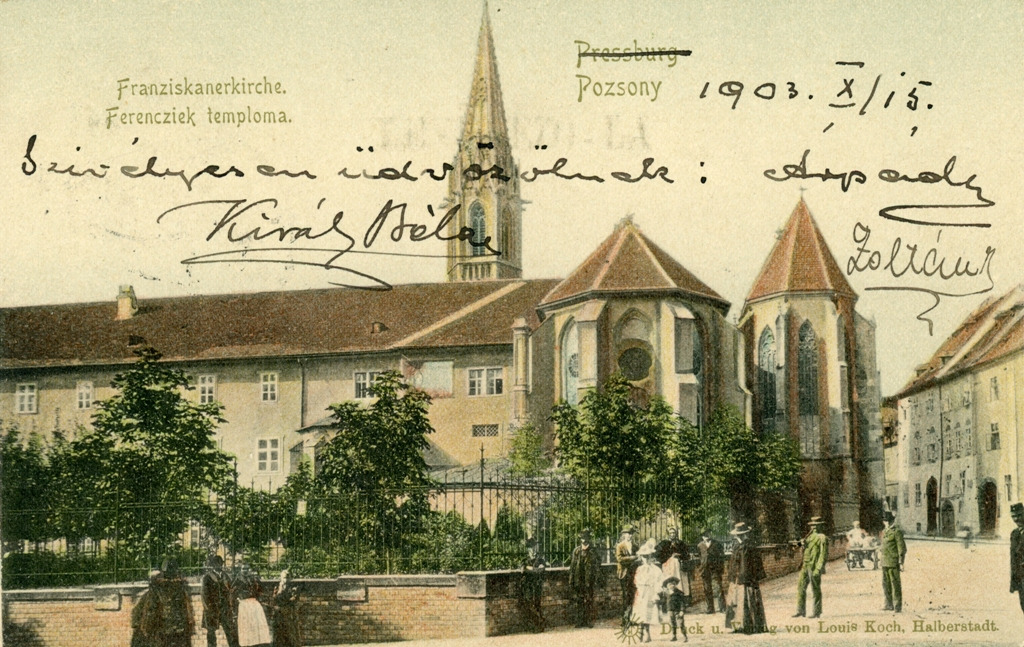 Franziskanerkirche.
Ferencziek temploma.
Pressburg
Pozsony
1903. X/15.
Szivélyesen üdvözölnek : Árpád
Király Béla
Zoltán
Druck u. Verlag von Louis Koch, Halberstadt.